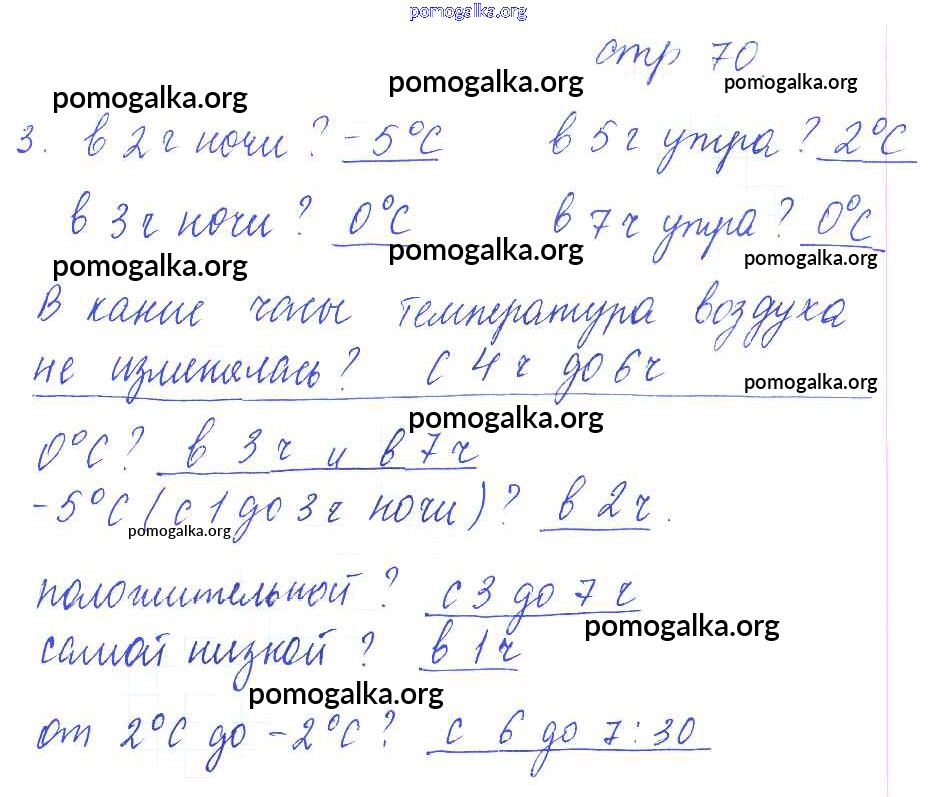 pomogalka.org
стр 70
pomogalka.org pomogalka.org pomogalka.org
3. в 2 ч ночи? -5°С в 5 ч утра? 2°С
в 3 ч ночи? 0°С в 7 ч утра? 0°С
pomogalka.org pomogalka.org pomogalka.org
В какие часы температура воздуха
не изменялась? с 4 ч до 6 ч
pomogalka.org
pomogalka.org
0°С? в 3 ч и в 7 ч
-5°С (с 1 до 3 ч ночи)? в 2 ч.
pomogalka.org
положительной? с 3 до 7 ч
pomogalka.org
самой низкой? в 1 ч
pomogalka.org
от 2°С до -2°С? с 6 до 7:30